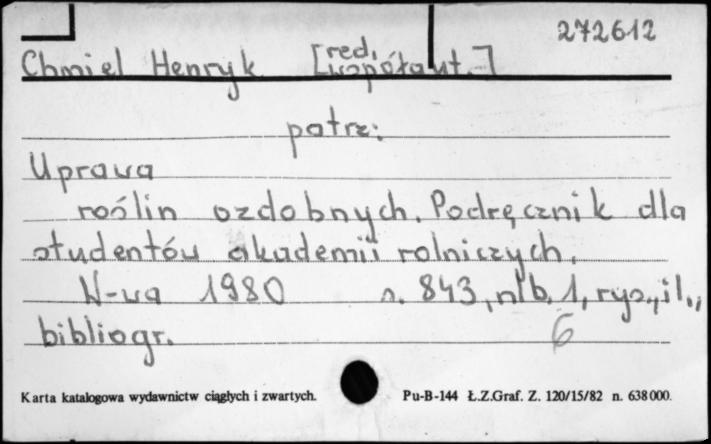 272612
Chmiel Henryk [red., współaut.]
patrz:
Uprawa
roślin ozdobnych. Podręcznik dla
studentów akademii rolniczych.
W-wa 1980 s. 843, nlb. 1, rys., il.,
bibliogr. 6
Karta katalogowa wydawnictw ciągłych i zwartych. Pu-B-144 Ł.Z.Graf. Z. 120/15/82 n. 638000.